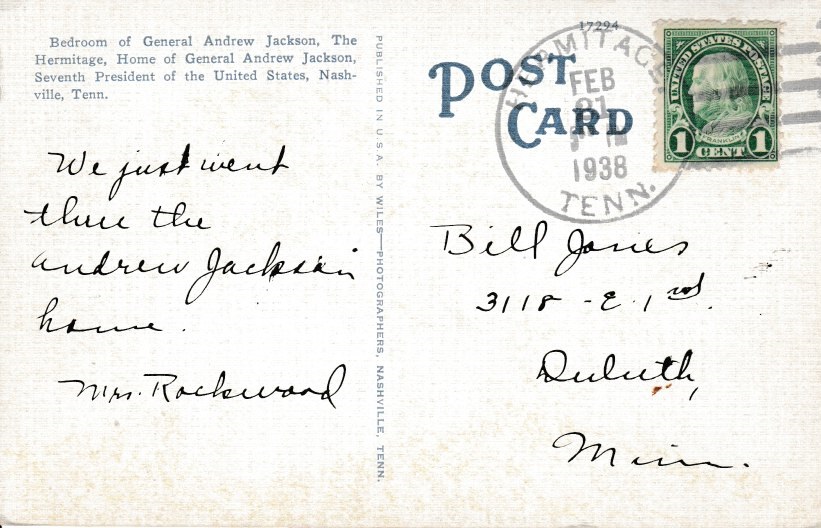 Bedroom of General Andrew Jackson, The
Hermitage, Home of General Andrew Jackson,
Seventh President of the United States, Nash-
ville, Tenn.
We just went
thru the
Andrew Jackson
home.
Mrs. Rockwood
PUBLISHED IN U.S.A. BY WILES—PHOTOGRAPHERS, NASHVILLE, TENN.
17294
POST
CARD
HERMITAGE
FEB
21
1938
TENN.
UNITED STATES POSTAGE
FRANKLIN
1 CENT 1
Bill Jones
3118 - E. 1st.
Duluth,
Minn.